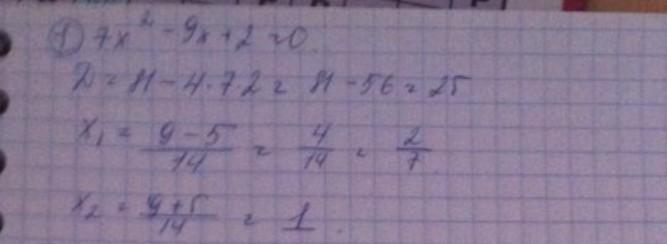 ① 7x² - 9x + 2 = 0
D = 81 - 4·7·2 = 81 - 56 = 25
x₁ = (9 - 5)/14 = 4/14 = 2/7
x₂ = (9 + 5)/14 = 1.